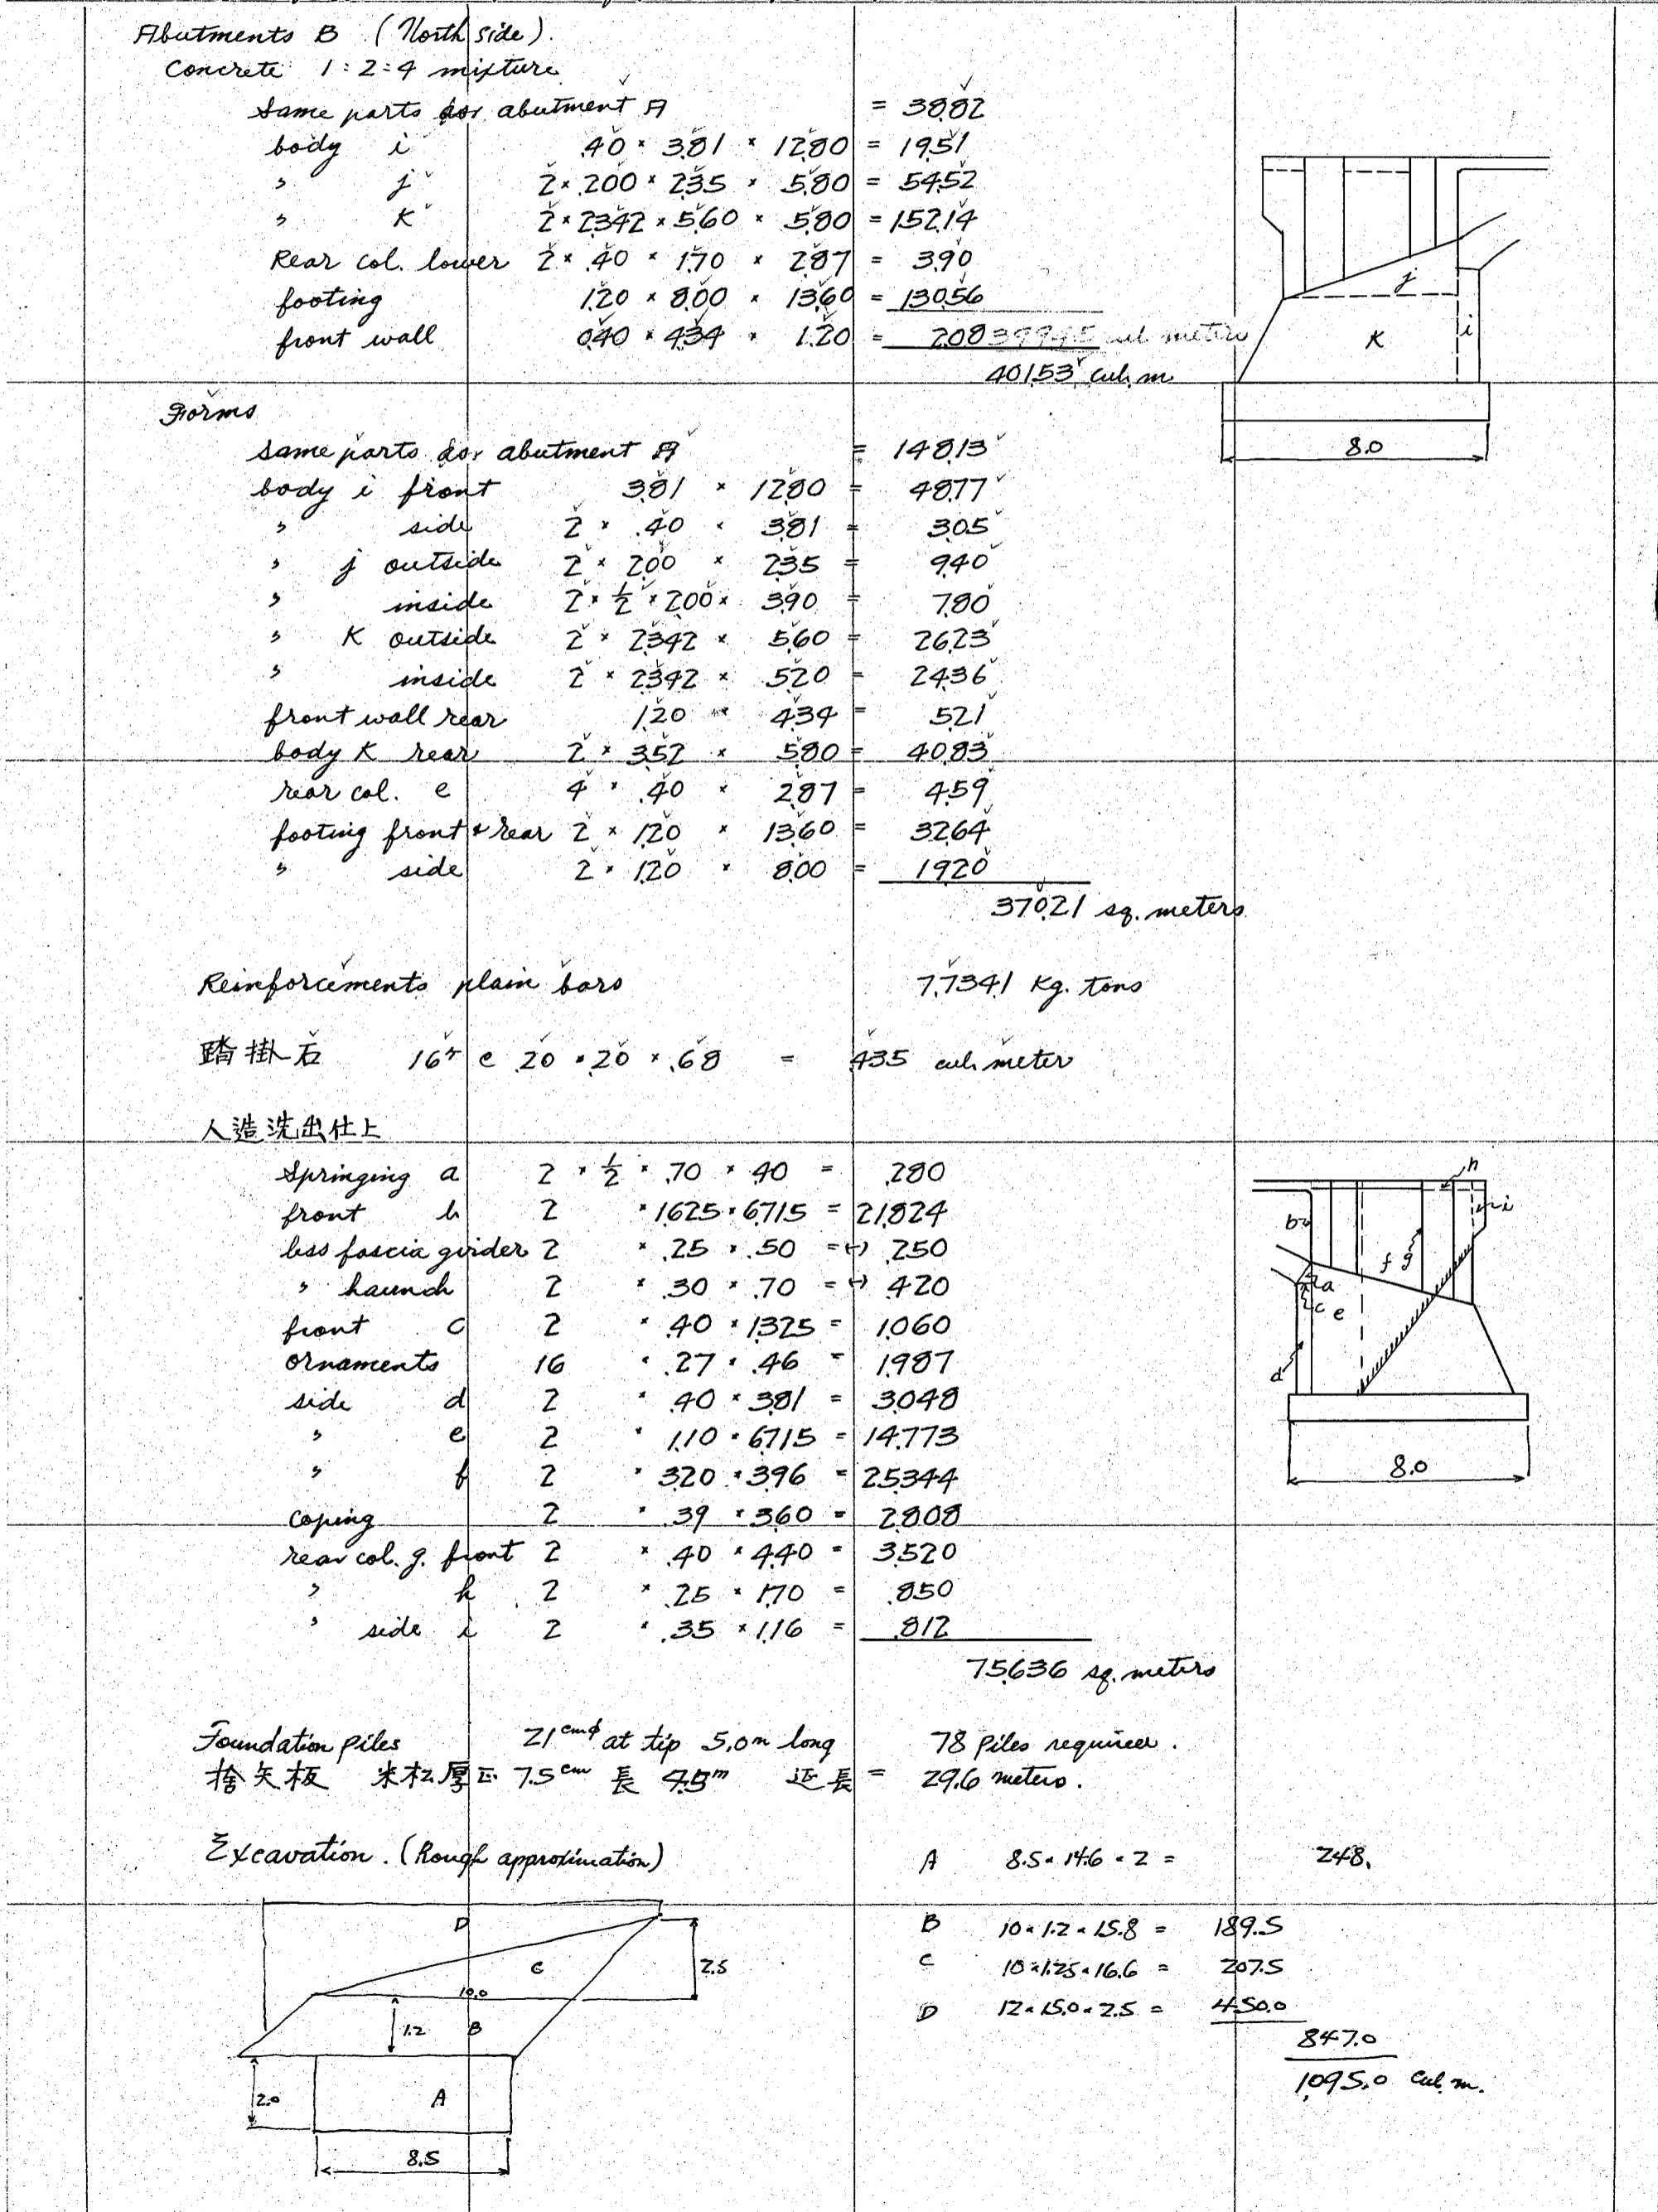 Abutments B (North side).
Concrete 1:2:4 mixture
Same parts for abutment A = 38.82
body i .40 × 3.81 × 12.80 = 19.51
〃 j 2 × 2.00 × 2.35 × 5.80 = 54.52
〃 K 2 × 2.342 × 5.60 × 5.80 = 152.14
Rear col. lower 2 × .40 × 1.70 × 2.87 = 3.90
footing 1.20 × 8.00 × 13.60 = 130.56
front wall 0.40 × 4.34 × 1.20 = 2.08 399.45 cub meters
401.53 cub. m
j
i
K
8.0
Forms
Same parts for abutment A = 148.13
body i front 3.81 × 12.80 = 48.77
〃 side 2 × .40 × 3.81 = 3.05
〃 j outside 2 × 2.00 × 2.35 = 9.40
〃 inside 2 × ½ × 2.00 × 3.90 = 7.80
〃 K outside 2 × 2.342 × 5.60 = 26.23
〃 inside 2 × 2.342 × 5.20 = 24.36
front wall rear 1.20 × 4.34 = 5.21
body K rear 2 × 3.52 × 5.80 = 40.83
rear col. e 4 × .40 × 2.87 = 4.59
footing front & rear 2 × 1.20 × 13.60 = 32.64
〃 side 2 × 1.20 × 8.00 = 19.20
370.21 sq. meters
Reinforcements plain bars 7.7341 Kg. tons
踏掛石 16ケ @ .20 × .20 × .68 = .435 cub. meter
人造洗出仕上
Springing a 2 × ½ × .70 × .40 = .280
front b 2 × 1.625 × 6.715 = 21.824
less fascia girder 2 × .25 × .50 = (-) .250
〃 haunch 2 × .30 × .70 = (-) .420
front c 2 × .40 × 1.325 = 1.060
ornaments 16 × .27 × .46 = 1.987
side d 2 × .40 × 3.81 = 3.048
〃 e 2 × 1.10 × 6.715 = 14.773
〃 f 2 × 3.20 × 3.96 = 25.344
coping 2 × .39 × 3.60 = 2.808
rear col. g. front 2 × .40 × 4.40 = 3.520
〃 h 2 × .25 × 1.70 = .850
〃 side i 2 × .35 × 1.16 = .812
75.636 sq. meters
h
b
i
f g
a
c e
d
8.0
Foundation Piles 21cmφ at tip 5.0m long 78 Piles required.
捨矢板 米松厚正 7.5cm 長 4.5m 延長 = 29.6 meters.
Excavation. (Rough approximation) A 8.5 × 14.6 × 2 = 248.
B 10 × 1.2 × 15.8 = 189.5
C 10 × 1.25 × 16.6 = 207.5
D 12 × 15.0 × 2.5 = 450.0
847.0
1095.0 cub. m.
D
C
2.5
10.0
1.2
B
2.0
A
8.5